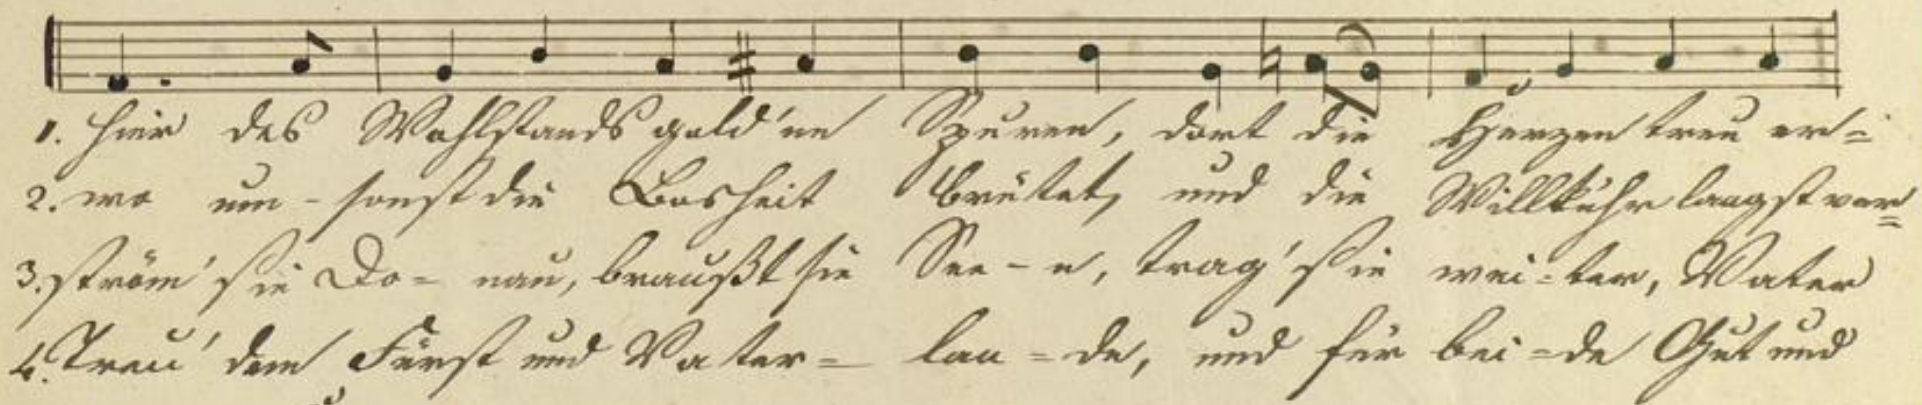 1. Hier des Wohlstands gold'ne Spuren, dort die Herzen treu er=
2. wo um-sonst die Bosheit brütet, und die Willkühr langst ver=
3. ström' sie Do= nau, braußt sie See-n, trag' sie wei=ter, Vater
4. Treu' dem Fürst und Vater= lan=de, und für bei=de Gut und